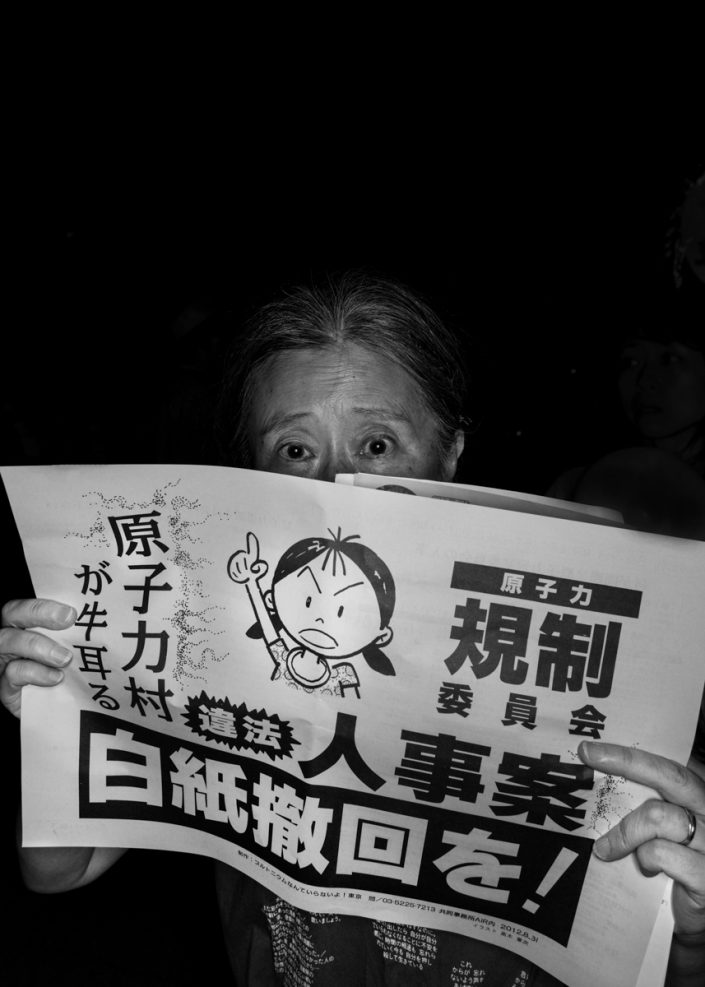 原子力村
が牛耳る
原子力
規制
委員会
違法
人事案
白紙撤回を!
制作：プルトニウムなんていらないよ！東京 問／03-5225-7213 共同事務所AIR内 2012.8.31
イラスト